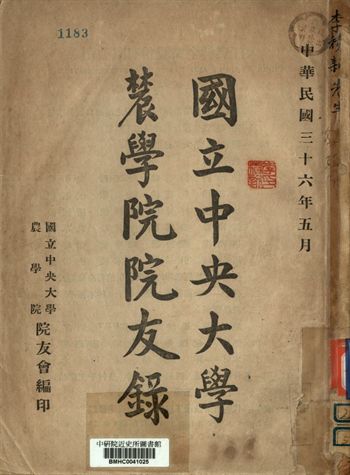 1183
中華民國三十六年五月
國立中央大學
農學院院友錄
國立中央大學
農學院
院友會編印
中研院近史所圖書館
BMHC0041025